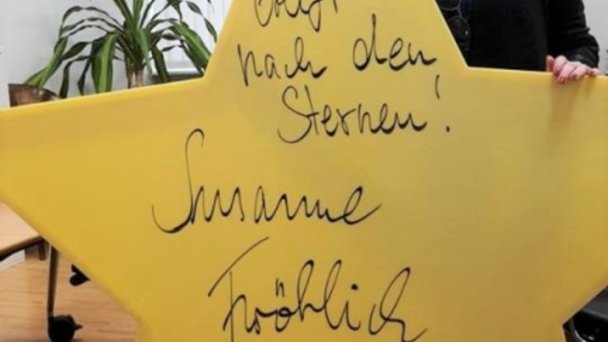 nach den
Sternen!
Susanne
Fröhlich